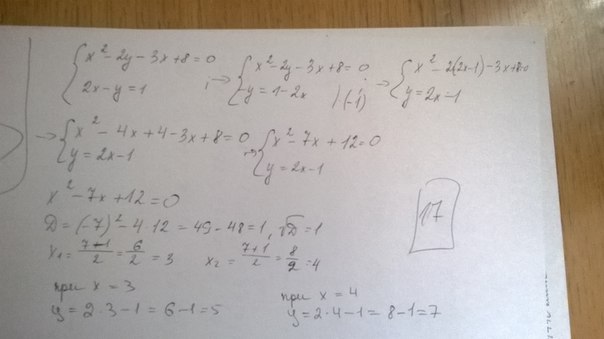 {x² - 2y - 3x + 8 = 0
{2x - y = 1
→ {x² - 2y - 3x + 8 = 0
{-y = 1 - 2x |·(-1)
→ {x² - 2(2x-1) - 3x + 8 = 0
{y = 2x - 1
→ {x² - 4x + 4 - 3x + 8 = 0
{y = 2x - 1
→ {x² - 7x + 12 = 0
{y = 2x - 1
x² - 7x + 12 = 0
D = (-7)² - 4·12 = 49 - 48 = 1, √D = 1
x₁ = (7-1)/2 = 6/2 = 3 x₂ = (7+1)/2 = 8/2 = 4
17
при x = 3
y = 2·3 - 1 = 6 - 1 = 5
при x = 4
y = 2·4 - 1 = 8 - 1 = 7